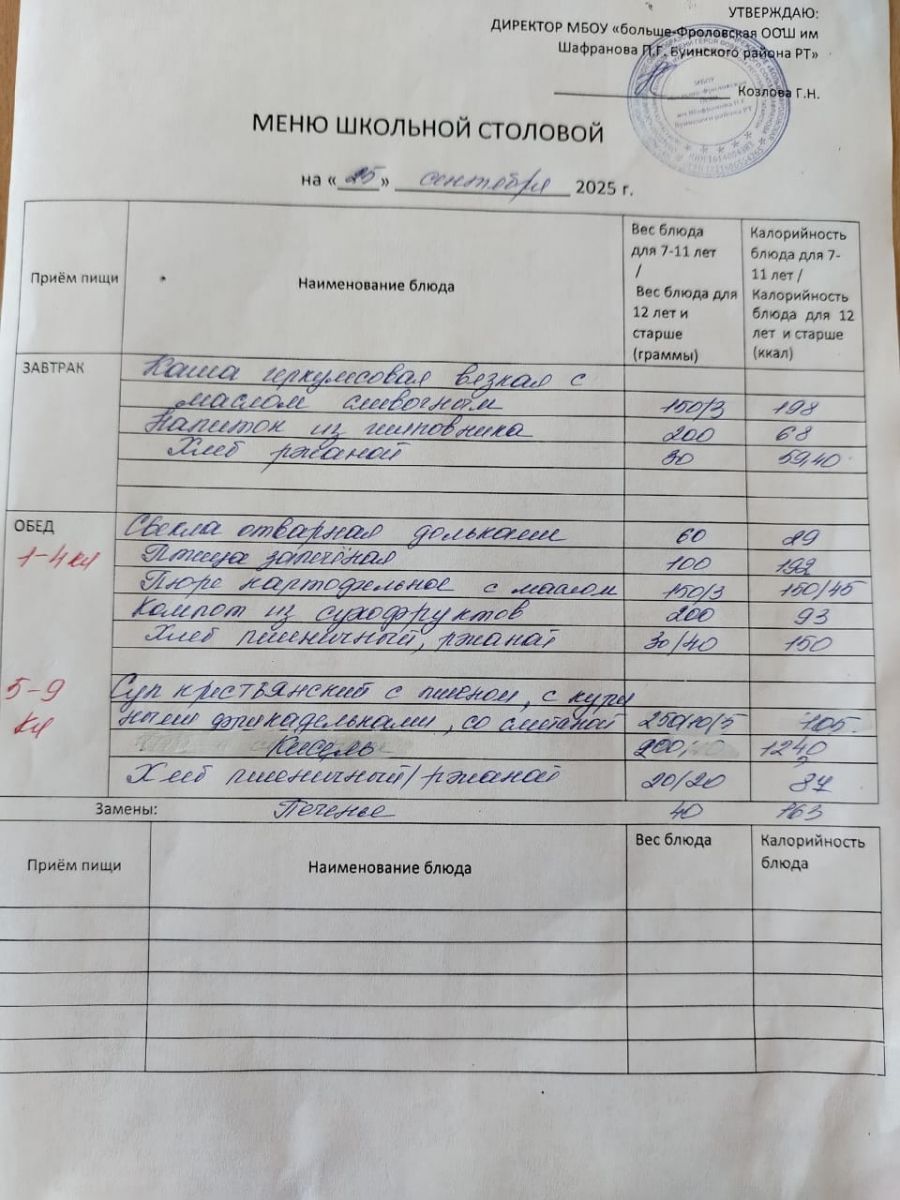 УТВЕРЖДАЮ:
ДИРЕКТОР МБОУ «больше-Фроловская ООШ им
Шафранова П.Г. Буинского района РТ»
Козлова Г.Н.
МЕНЮ ШКОЛЬНОЙ СТОЛОВОЙ
на «25» сентября 2025 г.
Приём пищи Наименование блюда Вес блюда для 7-11 лет / Вес блюда для 12 лет и старше (граммы) Калорийность блюда для 7-11 лет / Калорийность блюда для 12 лет и старше (ккал)
ЗАВТРАК Каша геркулесовая вязкая с
маслом сливочным 150/3 198
Напиток из шиповника 200 68
Хлеб ржаной 30 59,40
ОБЕД Свекла отварная дольками 60 29
1-4 кл Птица запечёная 100 192
Пюре картофельное с маслом 150/3 150/45
Компот из сухофруктов 200 93
Хлеб пшеничный, ржаной 30/40 150
5-9 Суп крестьянский с пшеном, с кури
кл ными фрикадельками, со сметаной 250/10/5 105
Кисель 200 1240
Хлеб пшеничный/ржаной 20/20 87
Замены: Печенье 40 163
Приём пищи Наименование блюда Вес блюда Калорийность блюда